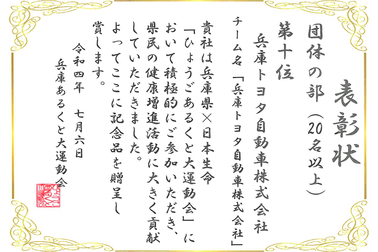 表彰状
団体の部(20名以上)
第十位
兵庫トヨタ自動車株式会社
チーム名「兵庫トヨタ自動車株式会社」
貴社は兵庫県×日本生命
「ひょうごあるくと大運動会」に
おいて積極的にご参加いただき、
県民の健康増進活動に大きく貢献
していただきました。
よってここに記念品を贈呈し
賞します。
令和四年 七月六日
兵庫あるくと大運動会